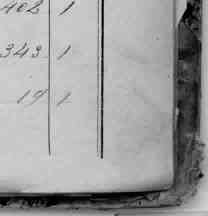 402 1
343 1
19 1